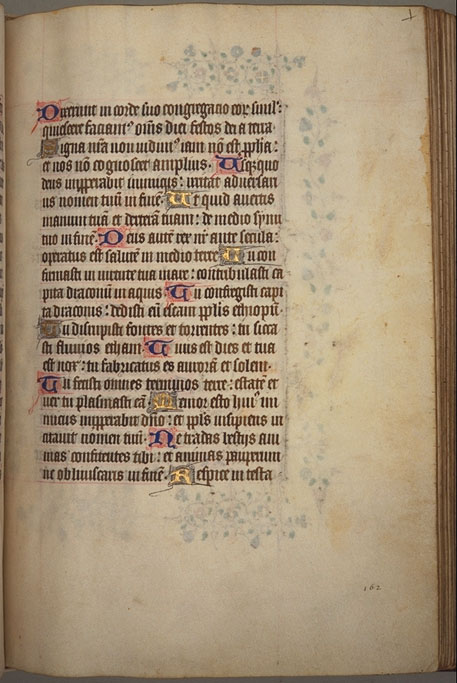 Dixerunt in corde suo congregacio eoꝝ simlˀ:
quiescere faciamˀ om̄s dies festos dei a terra
Signa nr̄a non vidimˀ iam nō est ꝓpħa:
et nos nō cognoscet amplius. Usqꝫquo
deus inꝓperabit inimicus: irritat adversari
us nomen tuū in finē. Ut quid avertis
manum tuā et dexterā tuam: de medio synu
tuo in finē. Deus autē rex nr̄ ante secula:
operatus est salutē in medio terre Tu con
firmasti in virtute tua mare: contribulasti ca
pita draconū in aquis. Tu confregisti capi
ta draconis: dedisti eū escam pplīs ethyopū.
Tu disrupisti fontes et torrentes: tu sicca
sti fluvios etham. Tuus est dies et tua
est nox: tu fabricatus es aurorā et solem.
Tu fecisti omnes terminos terre: estatē et
ver tu plasmasti ea Memor esto huiˀ ini
micus inꝓperabit dn̄o: et pplīs insipiens in
citavit nomen tuū. Ne tradas bestijs ani
mas confitentes tibi: et animas pauperum
ne obliviscaris in finē. Respice in testa
162